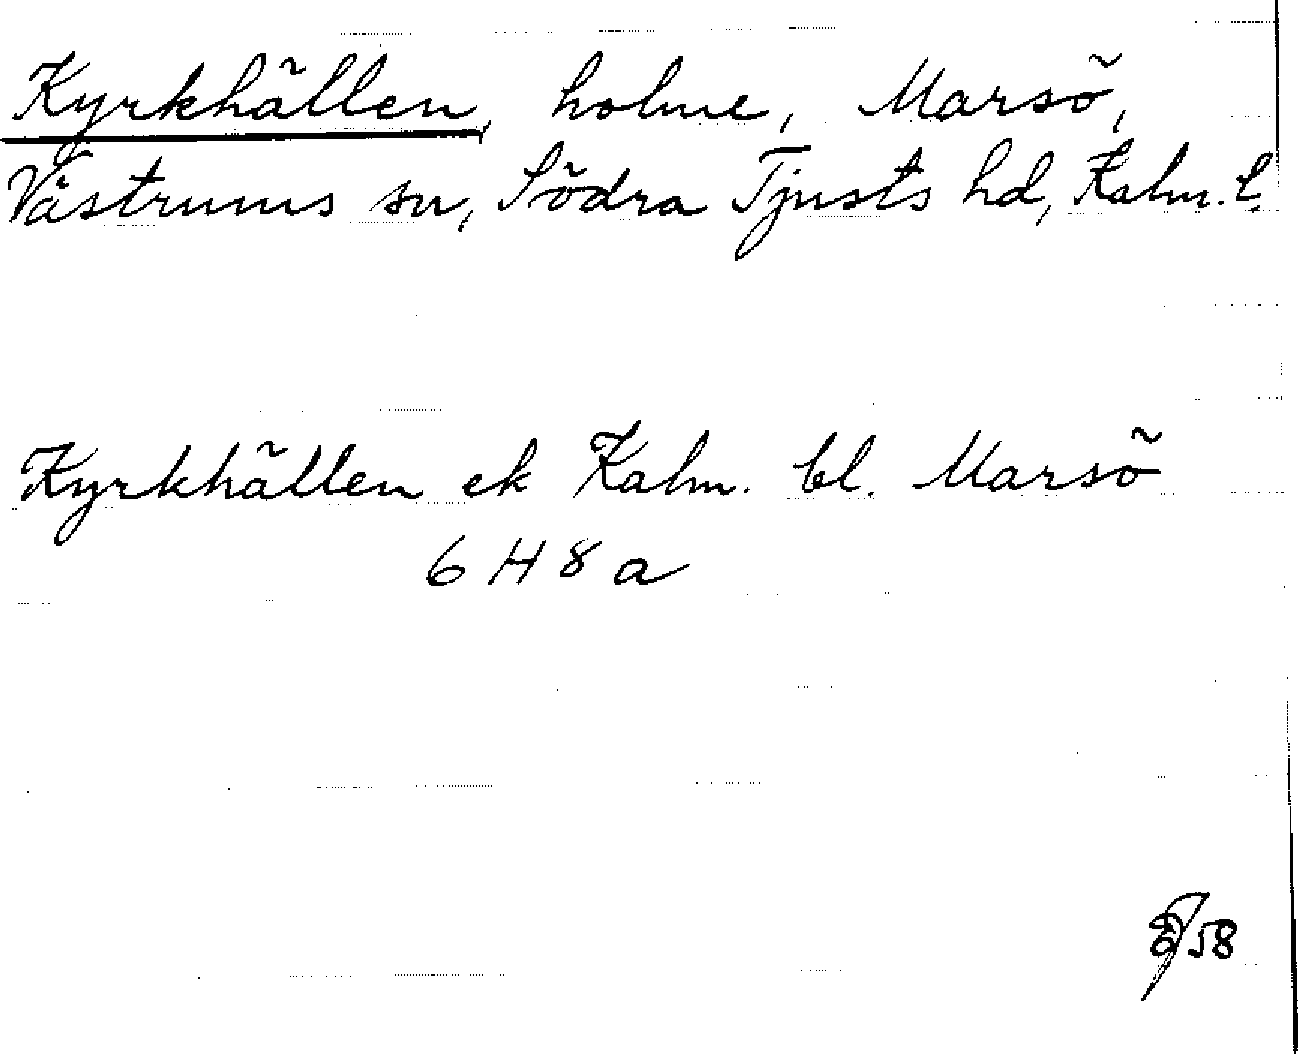 Kyrkhällen, holme, Marsö,
Västrums sn, Södra Tjusts hd, Kalm. l.
Kyrkhällen ek Kalm. bl. Marsö
6 H 8 a
58